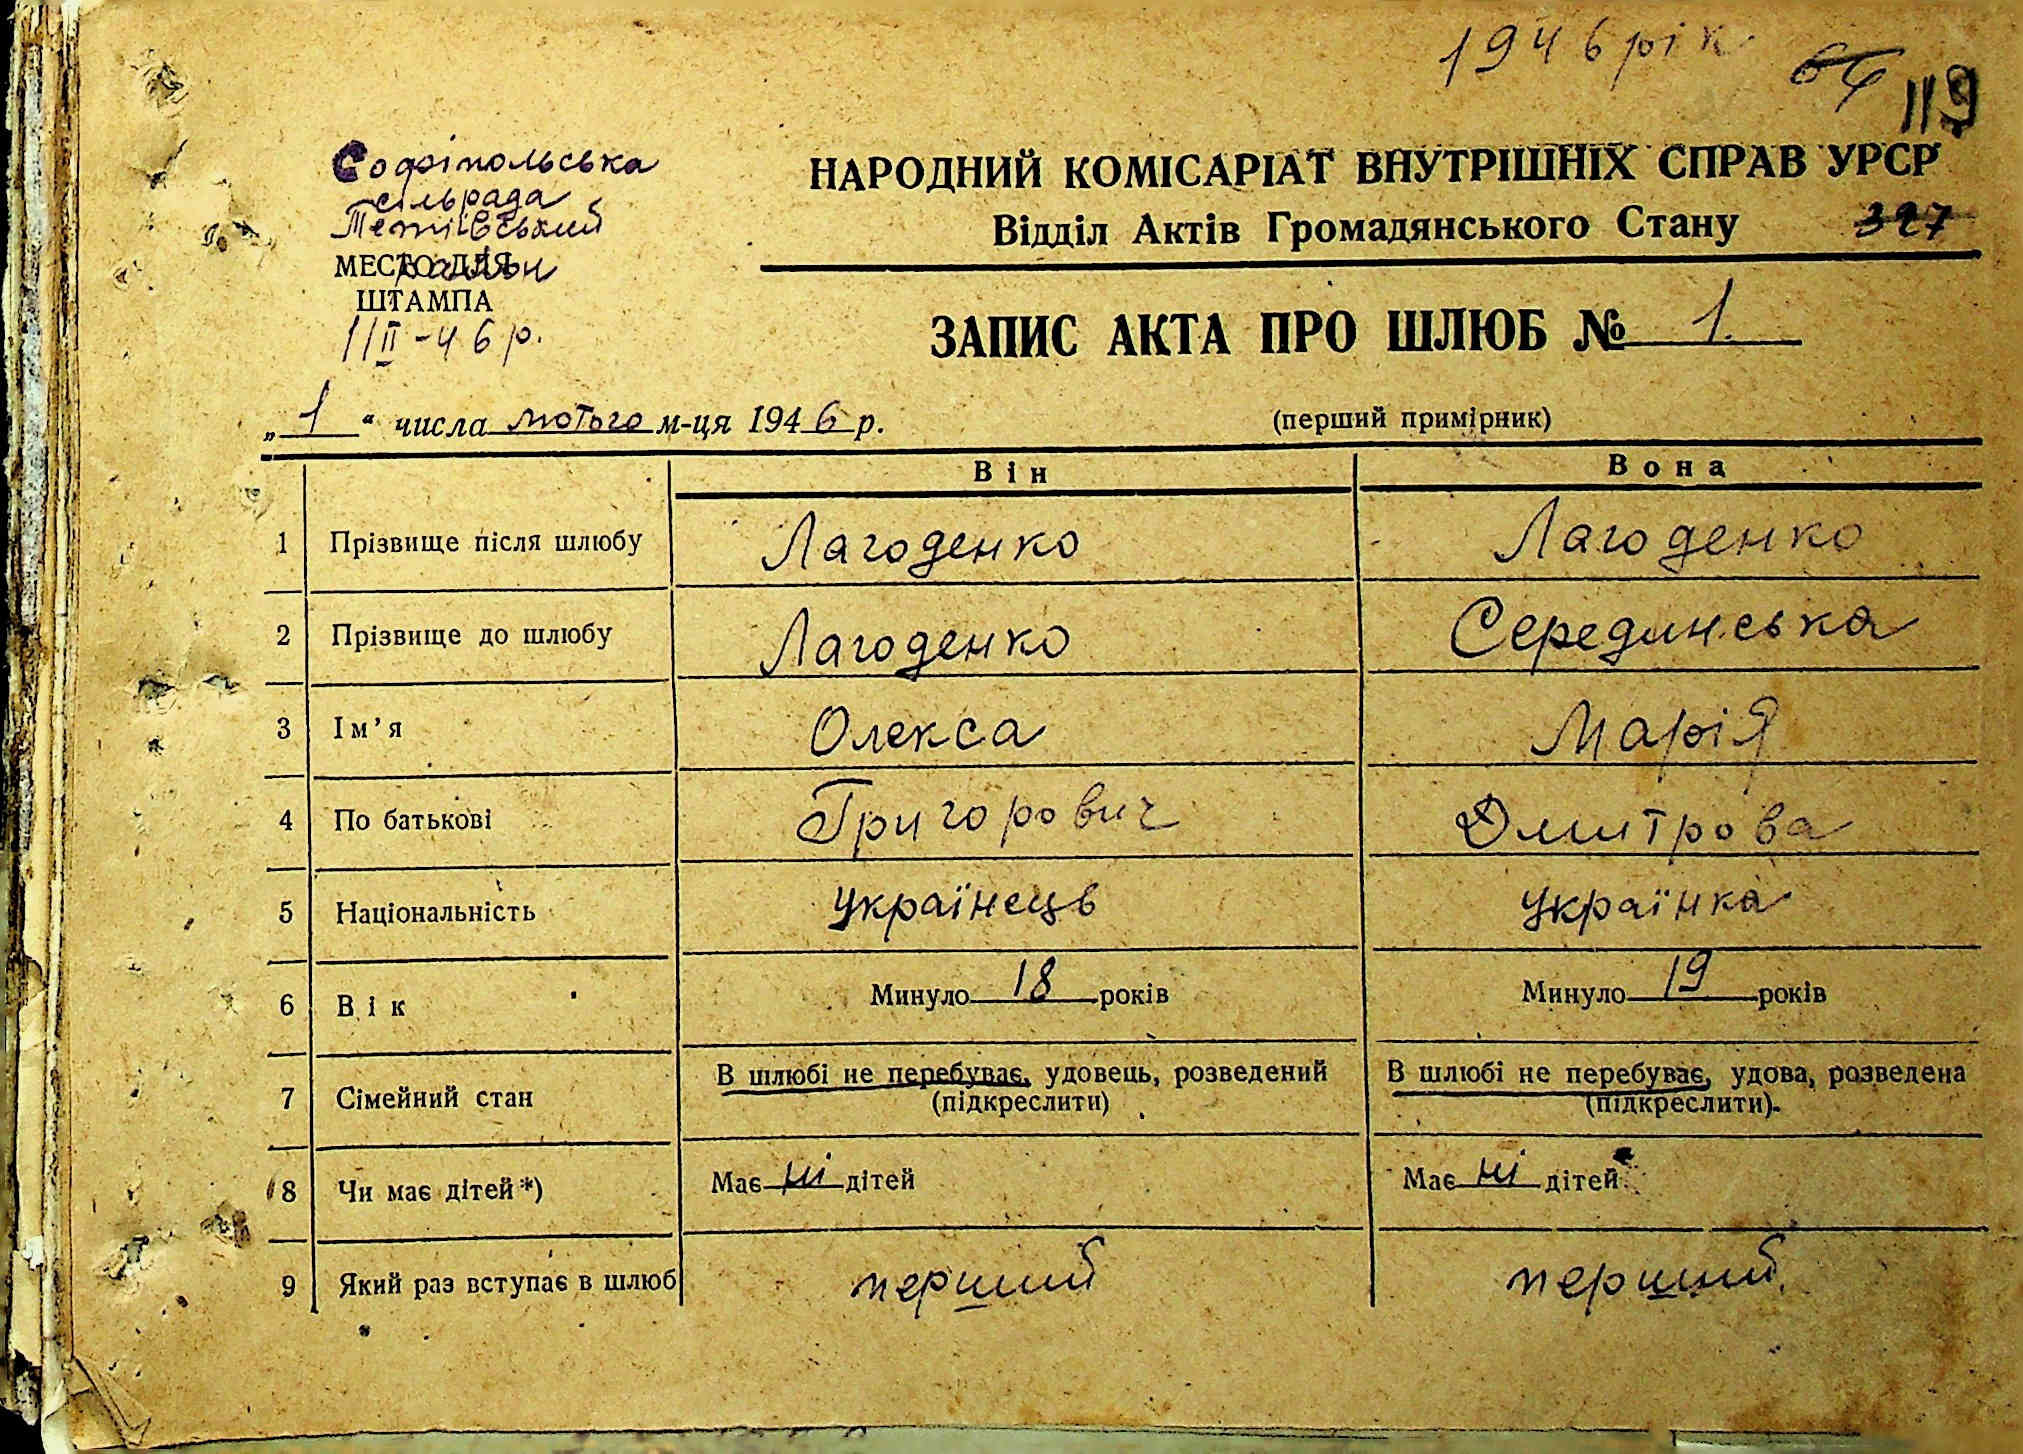 1946 рік
119
Софіпольська
сільрада
Тетіївський
район
МЕСТО ДЛЯ
ШТАМПА
1/II-46 р.
НАРОДНИЙ КОМІСАРІАТ ВНУТРІШНІХ СПРАВ УРСР
Відділ Актів Громадянського Стану 327
ЗАПИС АКТА ПРО ШЛЮБ № 1.
„1“ числа лютого м-ця 1946 р. (перший примірник)
Він Вона
1 Прізвище після шлюбу Лагоденко Лагоденко
2 Прізвище до шлюбу Лагоденко Серединська
3 Ім’я Олекса Марія
4 По батькові Григорович Дмитрова
5 Національність Українець Українка
6 Вік Минуло 18 років Минуло 19 років
7 Сімейний стан В шлюбі не перебуває, удовець, розведений (підкреслити) В шлюбі не перебуває, удова, розведена (підкреслити).
8 Чи має дітей*) Має ні дітей Має ні дітей
9 Який раз вступає в шлюб перший перший